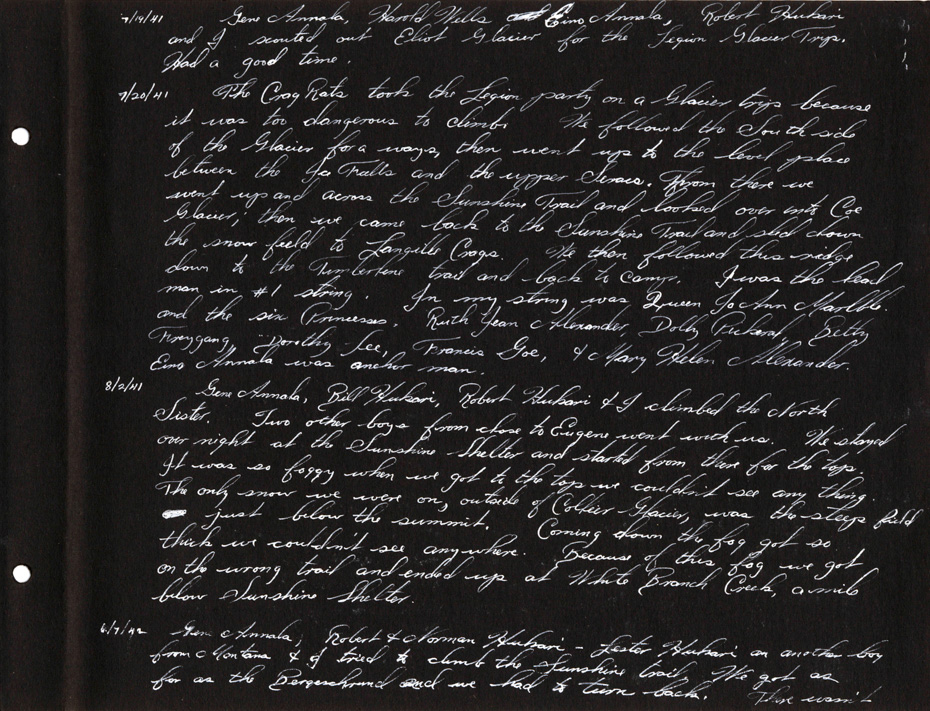 7/14/41 Gene Annala, Harold Wells Eino Annala, Robert Hukari
and I scouted out Eliot Glacier for the Legion Glacier Trip.
Had a good time.
7/20/41 The Crag Rats took the Legion party on a Glacier trip because
it was too dangerous to climb. We followed the South side
of the Glacier for a ways, then went up to the level place
between the Ice Falls and the upper Seracs. From there we
went up and across the Sunshine Trail and looked over into Coe
Glacier; then we came back to the Sunshine Trail and slid down
the snow field to Langille Crags. We then followed this ridge
down to the Timberline trail and back to camp. I was the lead
man in #1 string. In my string was Queen Jo Ann
and the six Princesses. Ruth Jean Alexander, Dolly Betty
Freygang, Dorothy Lee, Francis Goe, & Mary Helen Alexander.
Eino Annala was anchor man.
8/2/41 Gene Annala, Bill Hukari, Robert Hukari & I climbed the North
Sister. Two other boys from close to Eugene went with us. We stayed
over night at the Sunshine Shelter and started from there for the top.
It was so foggy when we got to the top we couldn't see any thing.
The only snow we were on, outside of Collier Glacier, was the steep field
just below the summit. Coming down the fog got so
thick we couldn't see anywhere. Because of this fog we got
on the wrong trail and ended up at White Branch Creek, a mile
below Sunshine Shelter.
6/7/42 Gene Annala, Robert & Norman Hukari - Lester Hukari an another boy
from Montana & I tried to climb the Sunshine trail. We got as
far as the Bergeschrund and we had to turn back. There wasn't